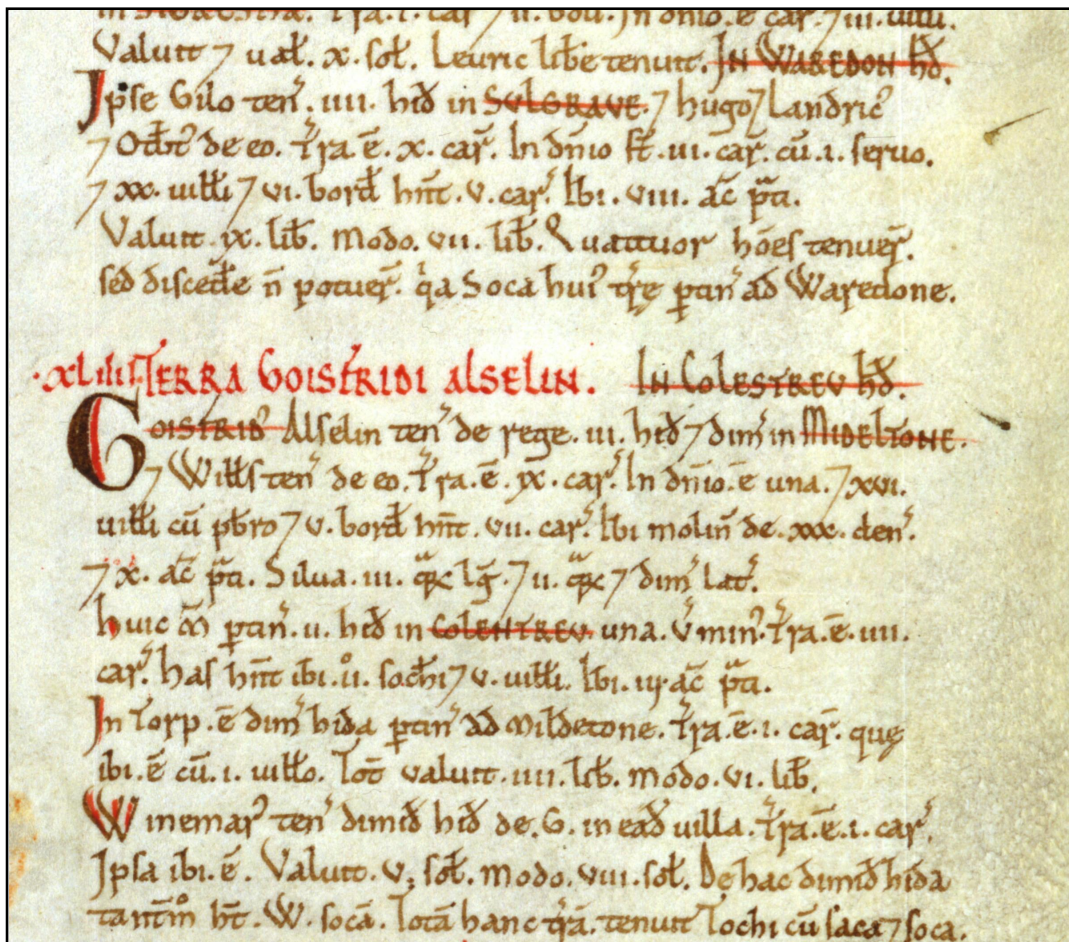 Valuit ⁊ ual̃. x. sol̃. Leuric libe tenuit. IN WAREDON HD̃.
Ipse Gilo teñ. iiii. hid̃ in SULGRAVE. ⁊ hugo ⁊ Landric᾿
⁊ Otb̃t᾿ de eo. T̃ra .ẽ. x. car̃. In dñio st̃ .iii. car̃. cũ .i. seruo.
⁊ xx. uilli ⁊ vi. bord̃ hñt .v. car̃. Ibi .viii. ac̃ p̃ti.
Valuit .ix. lib̃. Modo .vii. lib̃. Quattuor hoẽs tenuer̃.
sed discedẽ ñ potuer̃. q̇a Soca hui᾿ t̃rę ptiñ ad Waredone.
.XLIIII. TERRA GOISFRIDI ALSELIN. IN COLESTREU HD̃.
GOISFRID᾿ Alselin teñ de rege .iii. hid̃ ⁊ dim̃ in MIDELTONE.
⁊ Wills teñ de eo. T̃ra .ẽ. ix. car̃. In dñio .ẽ una. ⁊ xvi.
uilli cũ pb̃ro ⁊ v. bord̃ hñt .vii. car̃. Ibi moliñ de .xxx. deñ.
⁊ x. ac̃ p̃ti. Silua .iii. q̃rc lg̃. ⁊ ii. q̃rc ⁊ dim̃ lat̃.
Huic M̃ ptiñ .ii. hid̃ in COLENTREU una. v̓ min᾿. T̃ra .ẽ. iiii.
car̃. has hñt ibi .ii. sochi ⁊ v. uilli. Ibi .iii. ac̃ p̃ti.
In Torp .ẽ dim̃ hida ptiñ ad Mildetone. T̃ra .ẽ. i. car̃. quę
ibi .ẽ cũ .i. uillo. Tot̃ valuit .iiii. lib̃. Modo .vi. lib̃.
Winemar᾿ teñ dimid̃ hid̃ de .G. in ead̃ uilla. T̃ra .ẽ. i. car̃.
Ipsa ibi .ẽ. Valuit .v. sol̃. Modo .viii. sol̃. De hac dimid̃ hida
tantm̃ ht̃ .W. socã. Totã hanc t̃rã tenuit Tochi cũ saca ⁊ soca.